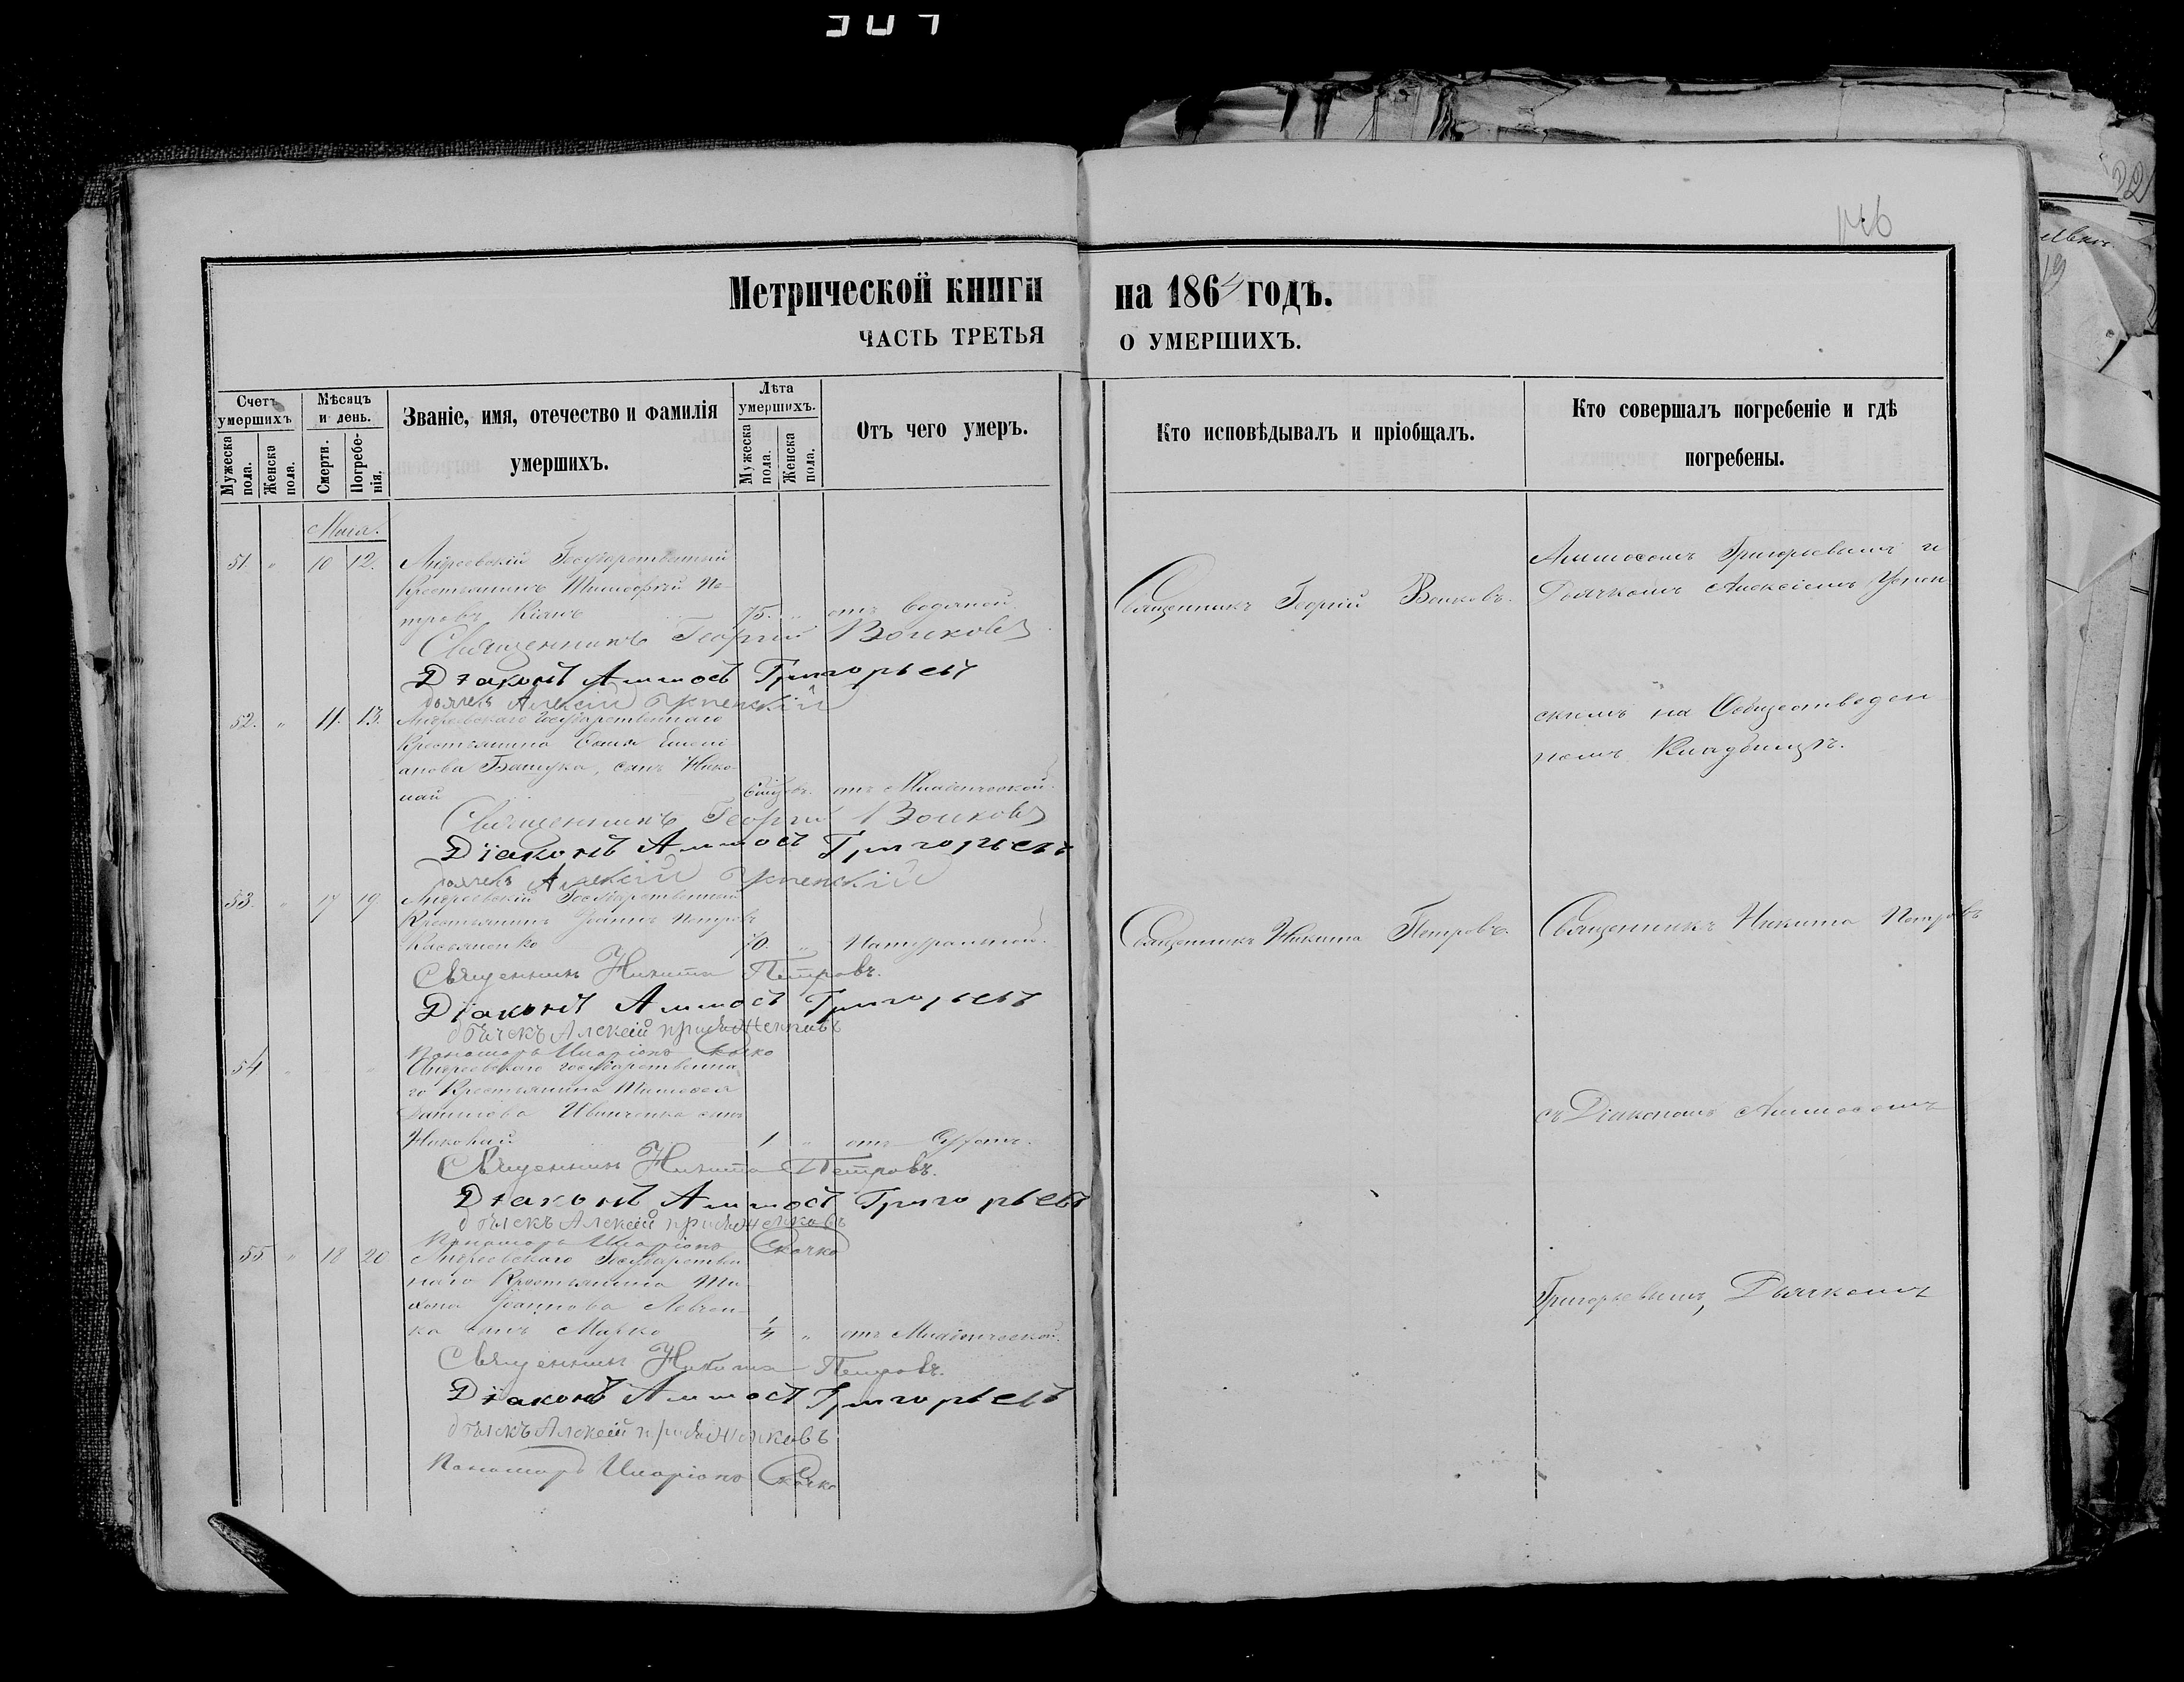 146
Метрической книги на 1864 годъ.
ЧАСТЬ ТРЕТЬЯ О УМЕРШИХЪ.
Счетъ умершихъ
Мужеска пола.
Женска пола.
Мѣсяцъ и день.
Смерти.
Погребе-
нія.
Званіе, имя, отечество и фамилія
умершихъ.
Лѣта умершихъ.
Мужеска пола.
Женска пола.
Отъ чего умеръ.
Кто исповѣдывалъ и пріобщалъ.
Кто совершалъ погребеніе и гдѣ
погребены.
Мая.
51. " 10 12. Андреевскій Государственный
Крестьянинъ Тимофѣй Пе-
тровъ 75. " отъ водяной.
Священникъ Георгій Волковъ
Діаконъ Аммосъ Григорьевъ
дьячекъ Алексій Успенскій
Священникъ Георгій Волковъ.
Аммосомъ Григорьевымъ и
Дьячкомъ Алексіемъ Успен
52. " 11. 13. Андреевскаго Государственнаго
Крестьянина
сынъ Нико-
лай отъ Младенческой.
Священникъ Георгій Волковъ
Діаконъ Аммосъ Григорьевъ
дьячекъ Алексій Успенскій
скимъ на Общественном
номъ Кладбищѣ.
53. " 17 19. Андреевскій Государственный
Крестьянинъ Іоаннъ Петровъ
Касьяненко 70. " Натуральной.
Священникъ Никита Петровъ.
Діаконъ Аммосъ Григорьевъ
дьячекъ Алексій
Пономарь Иларіонъ Скочко
Священникъ Никита Петровъ.
Священникъ Никита Петровъ
54 " " Андреевскаго Государственна-
го Крестьянина Тимофея
Данилова Иванченка сынъ
Николай 1 " отъ
Священникъ Никита Петровъ.
Діаконъ Аммосъ Григорьевъ
дьячекъ Алексій
Пономарь Иларіонъ Скочко
съ Діакономъ Аммосомъ
55 " 18 20 Андреевскаго Государствен
наго Крестьянина Ти-
хона Іоаннова Левчен-
ка сынъ Марко 1/4 " отъ Младенческой.
Священникъ Никита Петровъ.
Діаконъ Аммосъ Григорьевъ
дьячекъ Алексій
Пономарь Иларіонъ Скочко
Григорьевымъ, Дьячкомъ